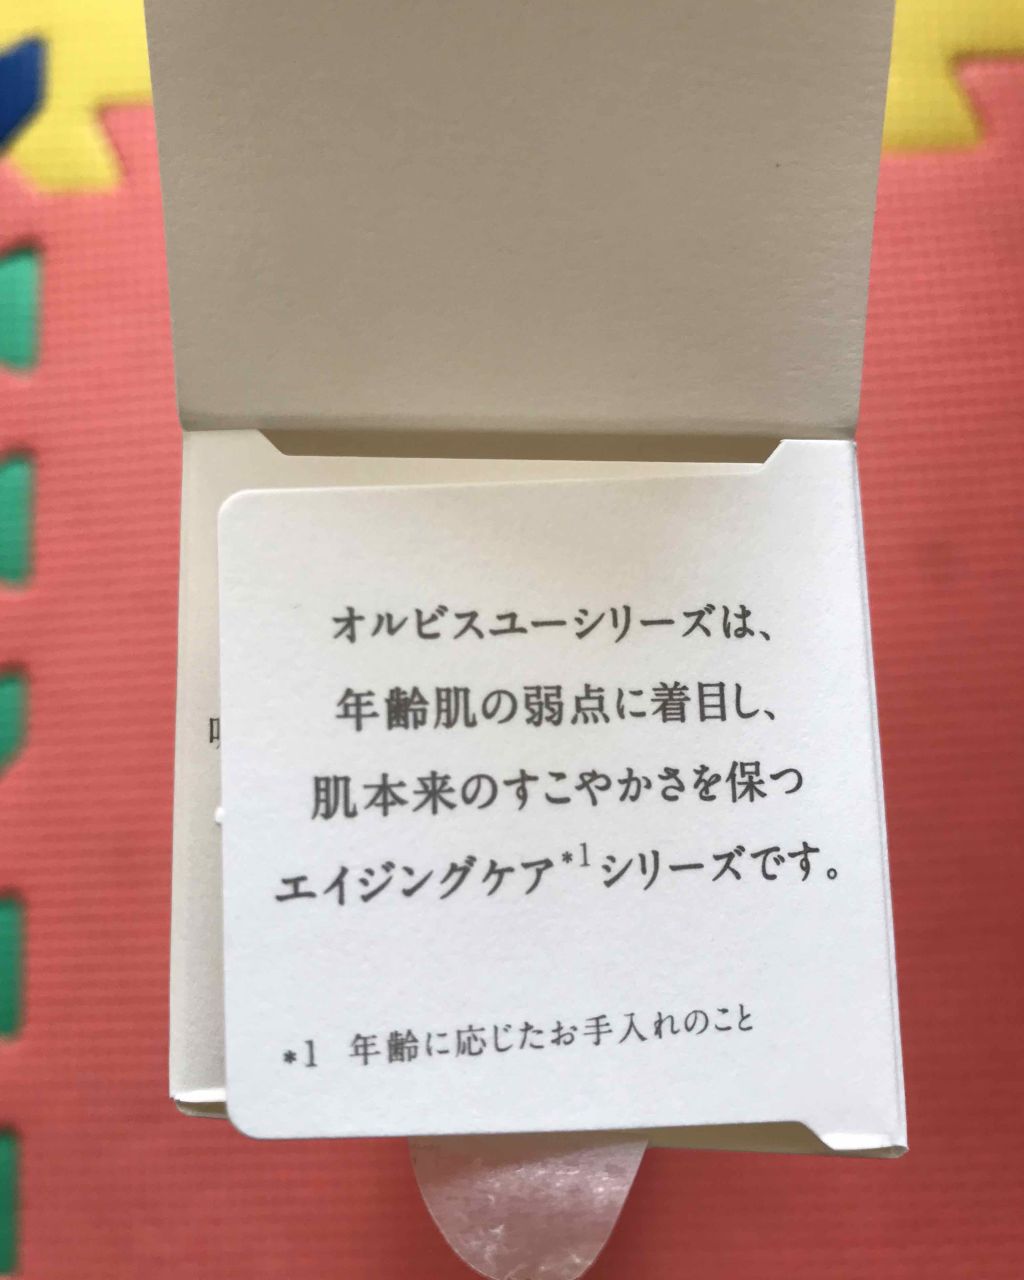 オルビスユーシリーズは、
年齢肌の弱点に着目し、
肌本来のすこやかさを保つ
エイジングケア*1シリーズです。
*1 年齢に応じたお手入れのこと